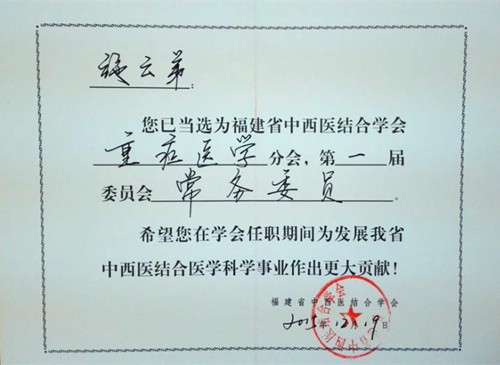 施云弟：
您已当选为福建省中西医结合学会
重症医学分会，第一届
委员会常务委员。
希望您在学会任职期间为发展我省
中西医结合医学科学事业作出更大贡献！
福建省中西医结合学会
2015年12月19日